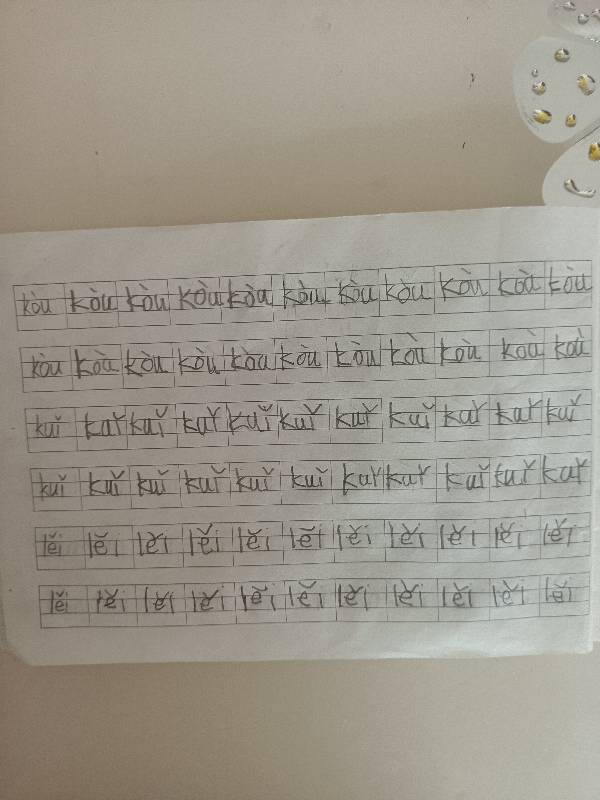 kòu kòu kòu kòu kòu kòu kòu kòu kòu kòu kòu
kòu kòu kòu kòu kòu kòu kòu kòu kòu kòu kòu
kuǐ kuǐ kuǐ kuǐ kuǐ kuǐ kuǐ kuǐ kuǐ kuǐ kuǐ
kuǐ kuǐ kuǐ kuǐ kuǐ kuǐ kuǐ kuǐ kuǐ kuǐ kuǐ
lěi lěi lěi lěi lěi lěi lěi lěi lěi lěi lěi
lěi lěi lěi lěi lěi lěi lěi lěi lěi lěi lěi